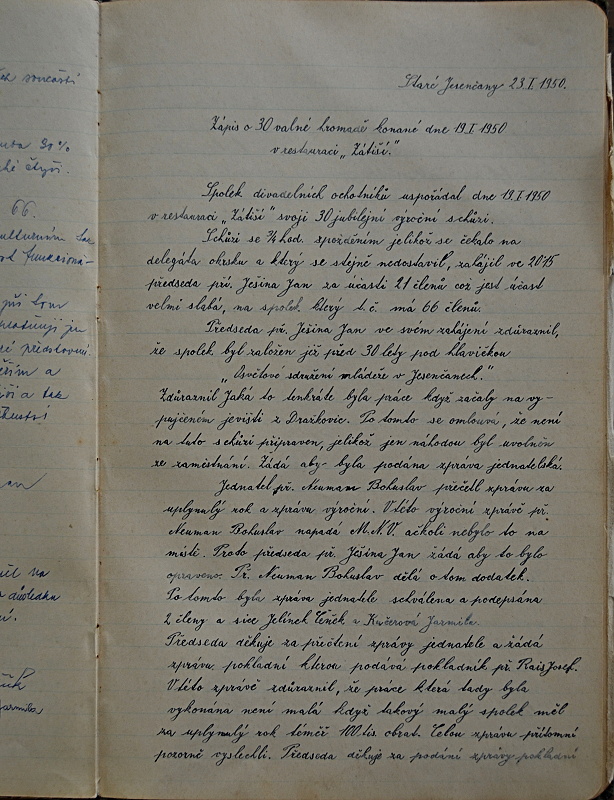 ch součástí
Staré Jesenčany 23.I.1950.
Zápis o 30 valné hromadě konané dne 19.I.1950
v restauraci „Zátiší."
Spolek divadelních ochotníků uspořádal dne 19.I.1950
v restauraci „Zátiší" svoji 30 jubilejní výroční schůzi.
Schůzi se ¾ hod. zpožděním jelikož se čekalo na
delegáta okrsku a který se stejně nedostavil, zahájil ve 20 15
předseda pří. Ješina Jan za účasti 21 členů což jest účast
velmi slabá, na spolek který t.č. má 66 členů.
Předseda př. Ješina Jan ve svém zahájení zdůraznil,
že spolek byl založen již před 30 lety pod hlavičkou
„Osvětové sdružení mládeže v Jesenčanech."
Zdůraznil jaká to tenkráte byla práce když začaly na vy-
pujčeném jevišti z Dražkovic. Po tomto se omlouvá, že není
na tuto schůzi připraven, jelikož jen náhodou byl uvolněn
ze zaměstnání. Žádá aby byla podána zpráva jednatelská.
Jednatel př. Neuman Bohuslav přečetl zprávu za
uplynulý rok a zprávu výroční. V této výroční zprávě př.
Neuman Bohuslav napadá M.N.V. ačkoli nebylo to na
místě. Proto předseda př. Ješina Jan žádá aby to bylo
opraveno. Př. Neuman Bohuslav dělá o tom dodatek.
Po tomto byla zpráva jednatele schválena a podepsána
2 členy a sice Jelínek Čeněk a Kučerová Jarmila.
Předseda děkuje za přečtení zprávy jednatele a žádá
zprávu pokladní kterou podává pokladník př. Rais Josef.
V této zprávě zdůraznil, že práce která tady byla
vykonána není malá když takový malý spolek měl
za uplynulý rok téměř 100 tis. obrat. Celou zprávu přítomní
pozorně vyslechli. Předseda děkuje za podání zprávy pokladní